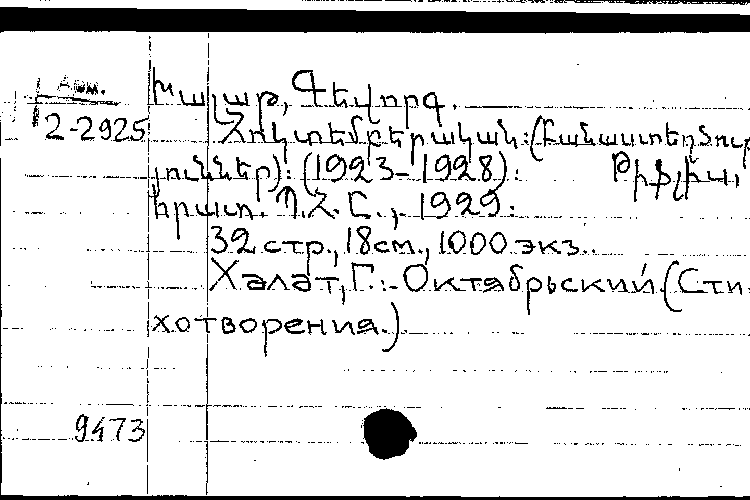 Арм.
2-2925
Խալաթ, Գեվորգ.
Հոկտեմբերական: (Բանաստեղծու
յուններ): (1923-1928): Թիֆլիս,
հրատ. Պ.Հ.Ը., 1929.
32 стр., 18см., 1000 экз..
Халат, Г.:- Октябрьский.(Сти-
хотворения.).
9473